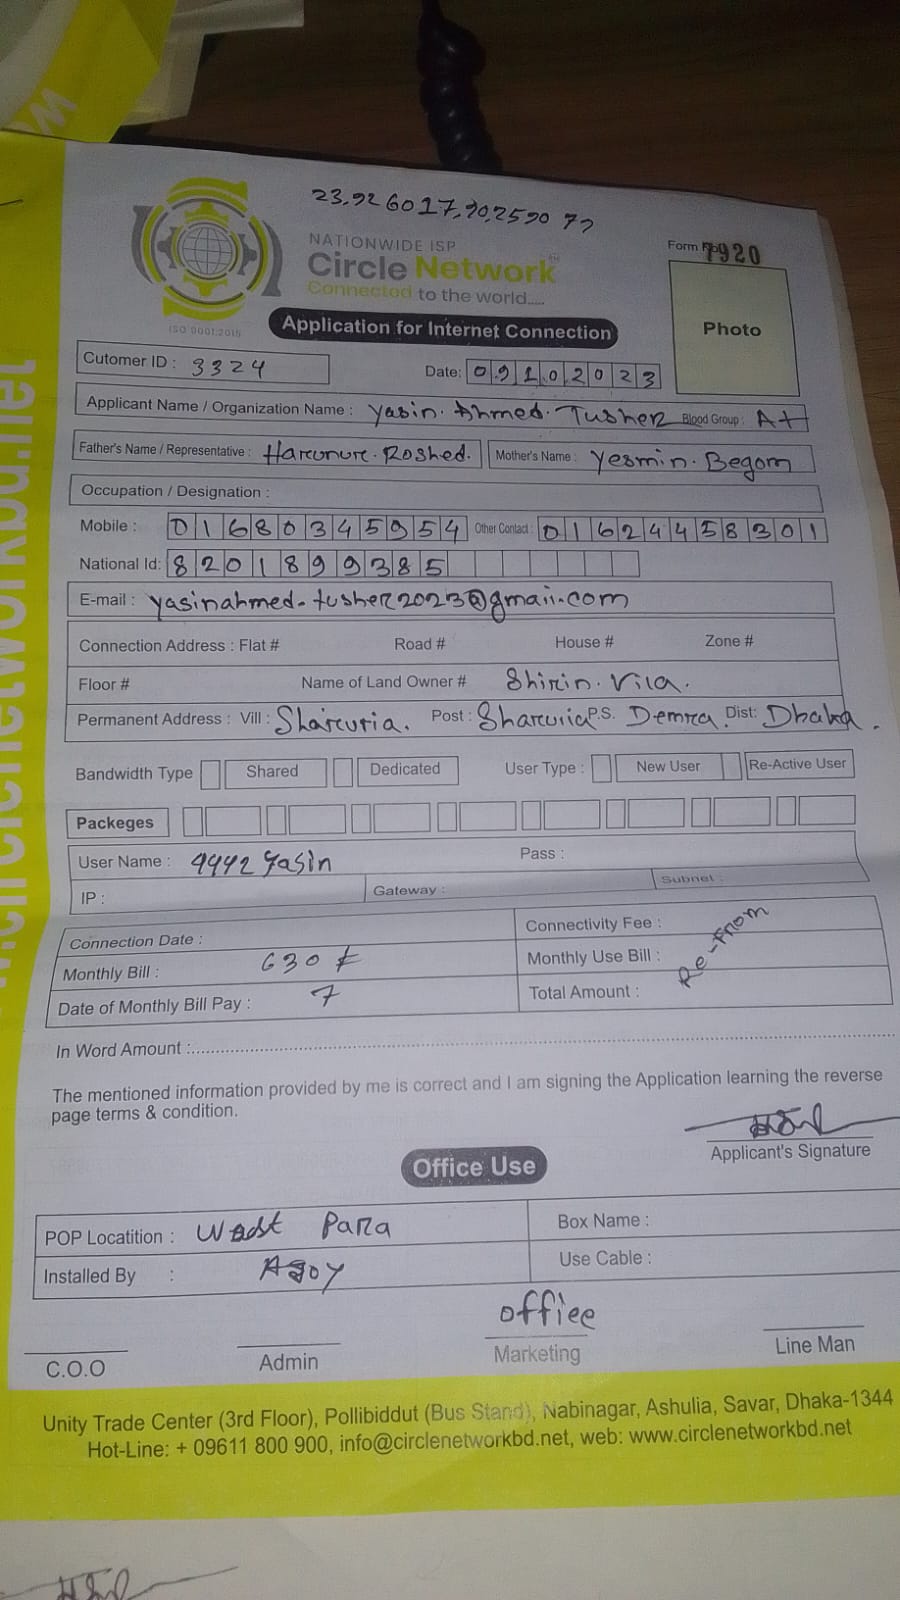 23.926017,90.259072
NATIONWIDE ISP
Form No 7920
Circle Network
Connected to the world.....
ISO 9001:2015
Application for Internet Connection
Photo
Cutomer ID : 3324
Date: 09102023
Applicant Name / Organization Name : Yasin. Ahmed. Tusher Blood Group : A+
Father's Name / Representative : Harunur. Roshed. Mother's Name : Yesmin. Begom
Occupation / Designation :
Mobile : 01680345954 Other Contact : 01624458301
National Id: 8201899385
E-mail : yasinahmed.tusher2023@gmail.com
Connection Address : Flat # Road # House # Zone #
Floor # Name of Land Owner # Shirin. Vila.
Permanent Address : Vill : Sharuria. Post : Sharuria P.S. Demra. Dist: Dhaka.
Bandwidth Type Shared Dedicated User Type : New User Re-Active User
Packeges
User Name : 9442yasin Pass :
IP : Gateway : Subnet :
Connection Date : Connectivity Fee :
Monthly Bill : 630 ৳ Monthly Use Bill : Re-From
Date of Monthly Bill Pay : 7 Total Amount :
In Word Amount :
The mentioned information provided by me is correct and I am signing the Application learning the reverse
page terms & condition.
Applicant's Signature
Office Use
POP Locatition : West Para Box Name :
Installed By : Ajoy Use Cable :
office
C.O.O Admin Marketing Line Man
Unity Trade Center (3rd Floor), Pollibiddut (Bus Stand), Nabinagar, Ashulia, Savar, Dhaka-1344
Hot-Line: + 09611 800 900, info@circlenetworkbd.net, web: www.circlenetworkbd.net